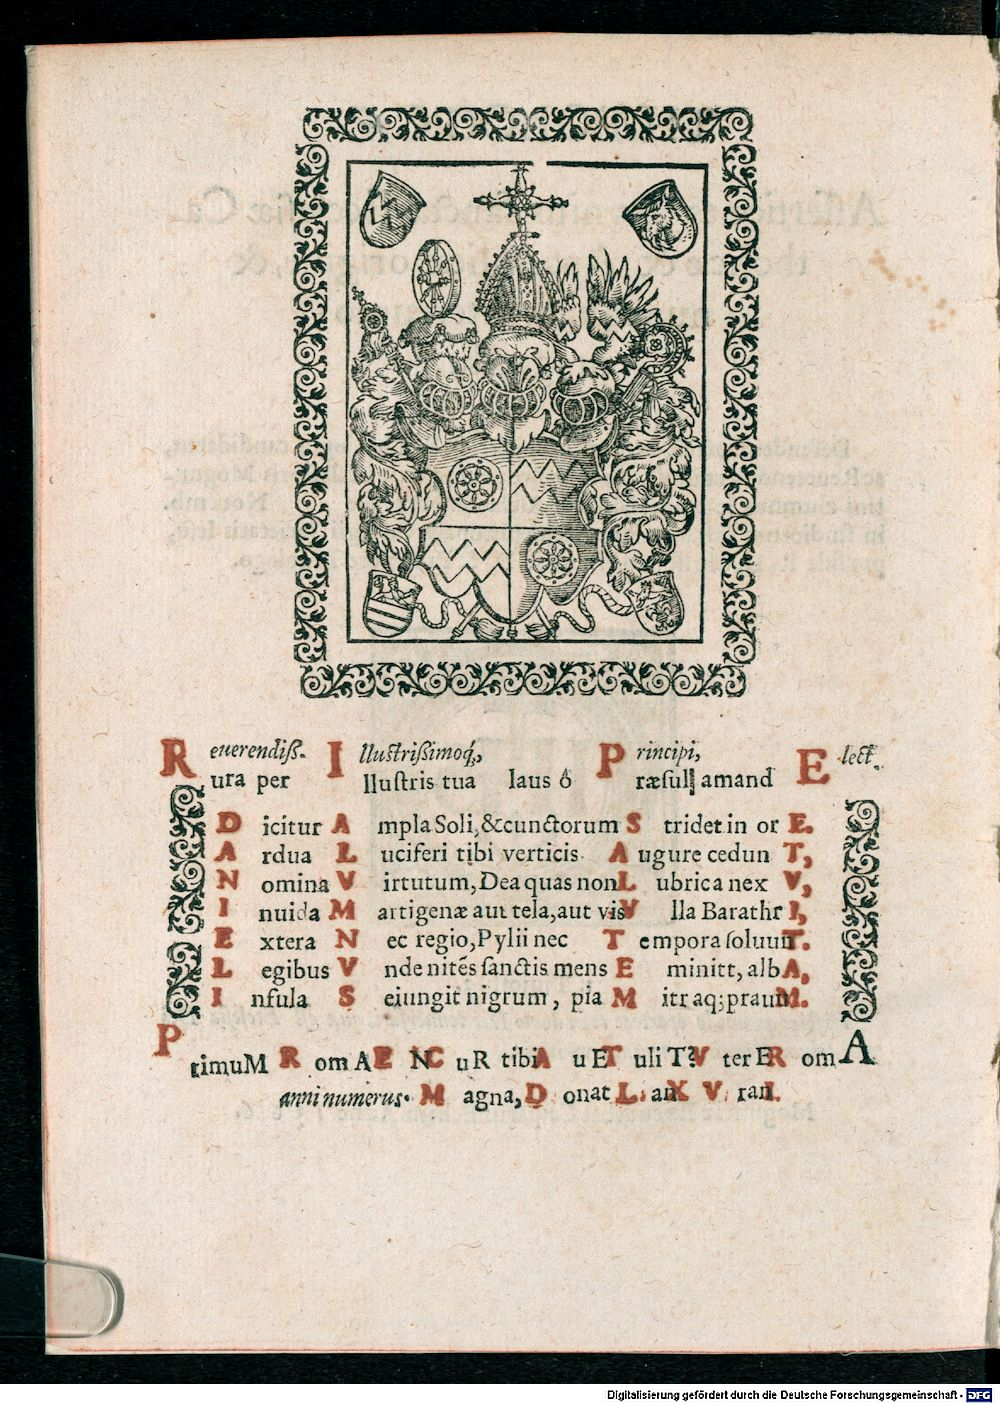 Reuerendiß. Illustrißimoq́; Principi, Elect.
Rura per Illustris tua laus ô Præsul amand E
Dicitur Ampla Soli, & cunctorum Stridet in or E.
Ardua Luciferi tibi verticis Augure cedun T,
Nomina Virtutum, Dea quas non Lubrica nex V,
Inuida Martigenæ aut tela, aut vis Vlla Barathr I,
Extera Nec regio, Pylii nec Tempora soluun T.
Legibus Vnde nitēs sanctis mens Eminit, alb A,
Insula Seiungit nigrum, pia Mitraq; prauu M.
PrimuM RomAE NCuR tibi AuET TuliT? VterE RomA
anni numerus. Magna, Donat L. an XV. ran I.
Digitalisierung gefördert durch die Deutsche Forschungsgemeinschaft - DFG